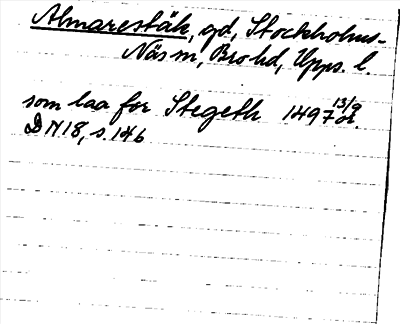 Almarestäk, gd, Stockholms-
Näs sn, Bro hd, Upps. l.
som laa for Stegeth 1497 13/9 or.
DN 18, s. 146